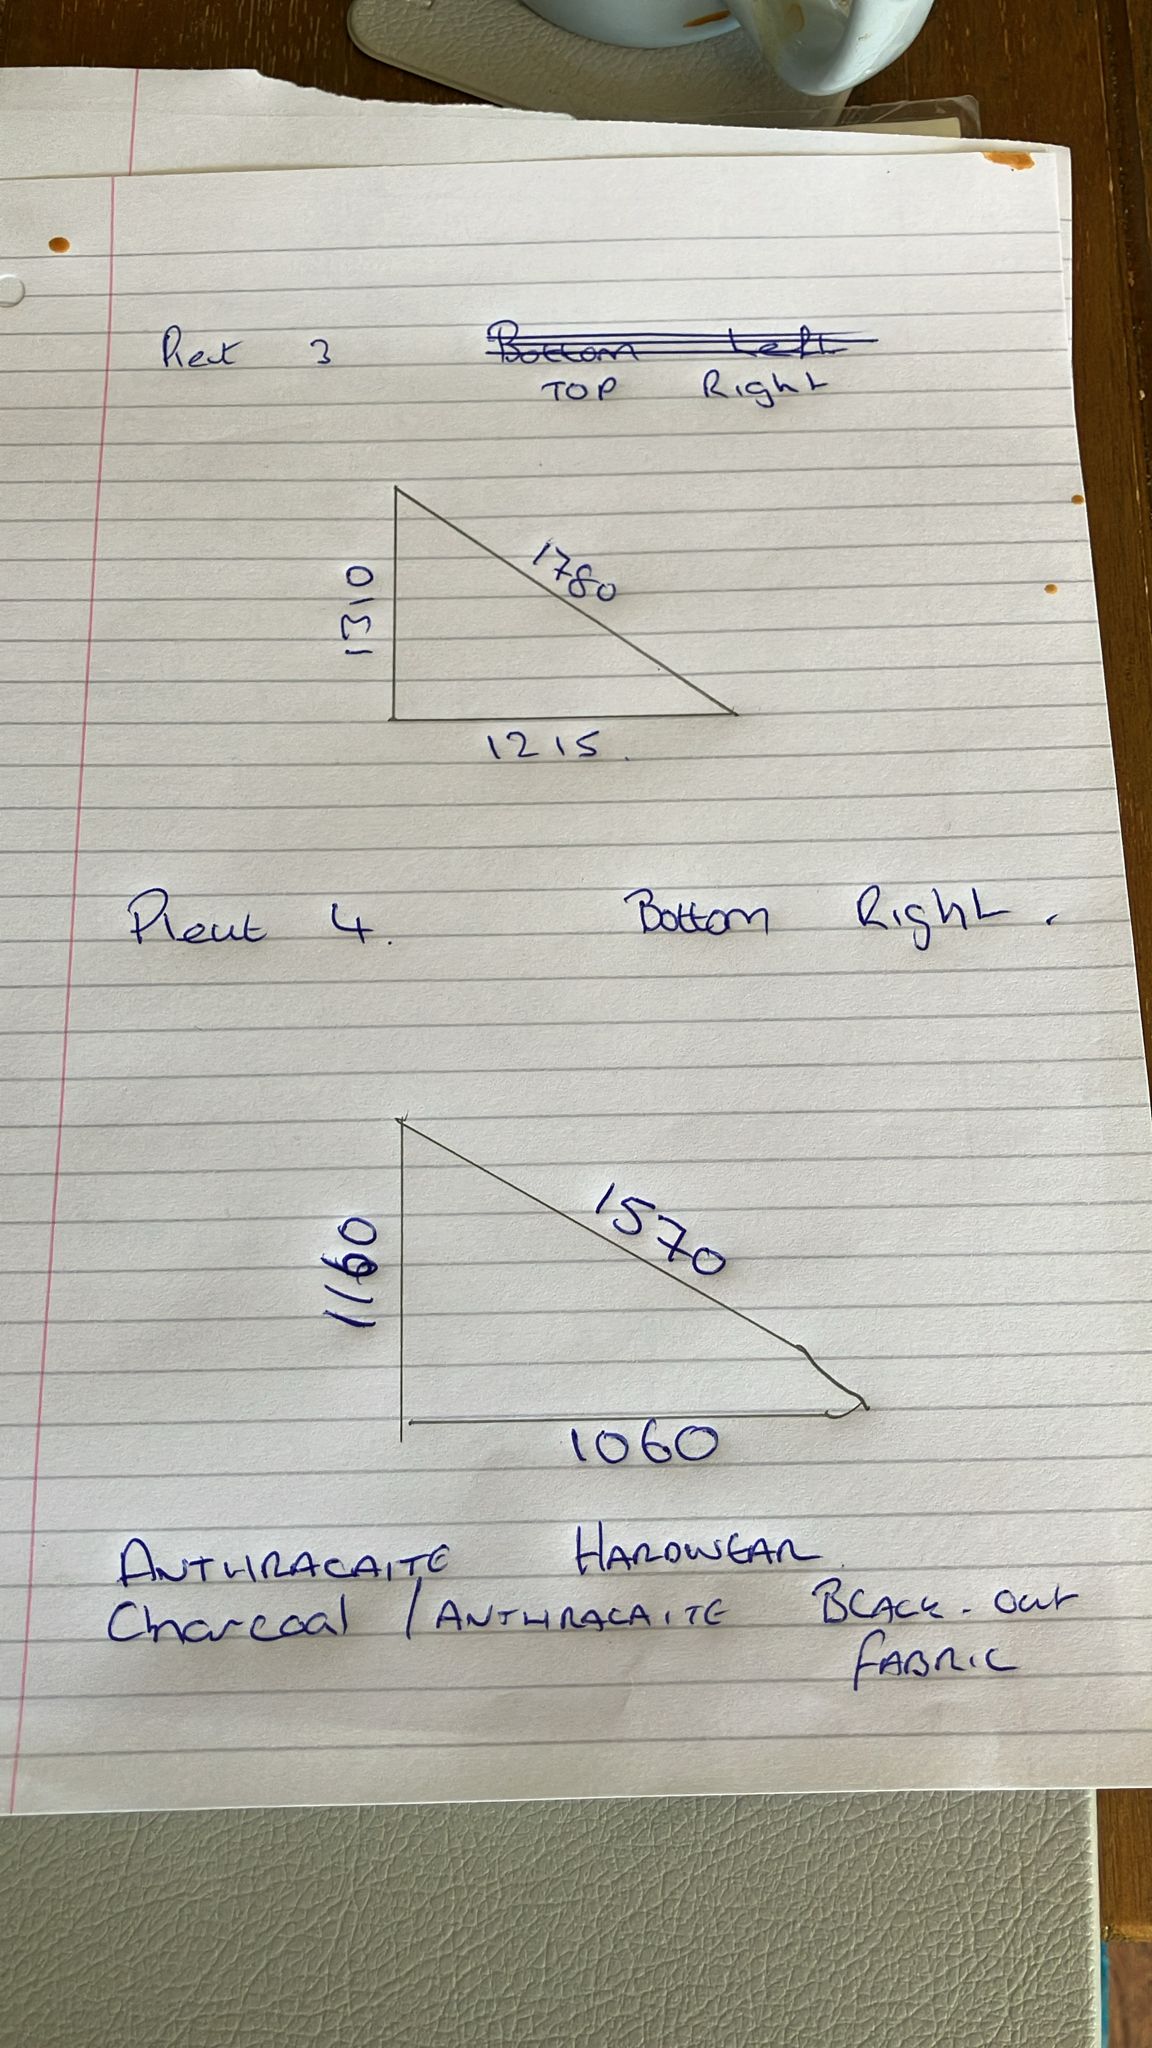 Pleat 3
TOP Right
1310
1780
1215.
Pleat 4.
Bottom Right.
1160
1570
1060
ANTHRACAITE HARDWEAR
Charcoal / ANTHRACAITE BLACK-OUT
FABRIC